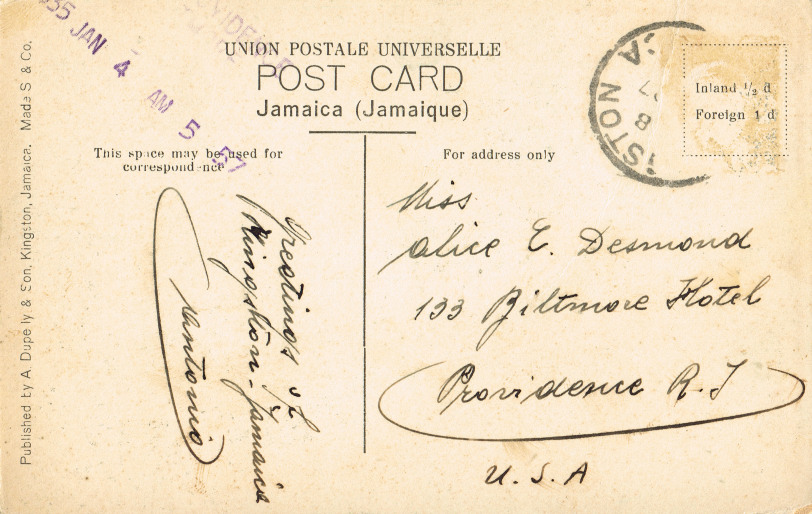 35 JAN 4 AM 5 57
UNION POSTALE UNIVERSELLE
POST CARD
Jamaica (Jamaique)
This space may be used for
correspondence
For address only
Inland ½ d
Foreign 1 d
STON
8
Miss
Alice E. Desmond
133 Biltmore Hotel
Providence R.I
U.S.A
Greetings
Kingston-Jamaica
Antonio
Published by A Duperly & Son, Kingston, Jamaica. Made S & Co.